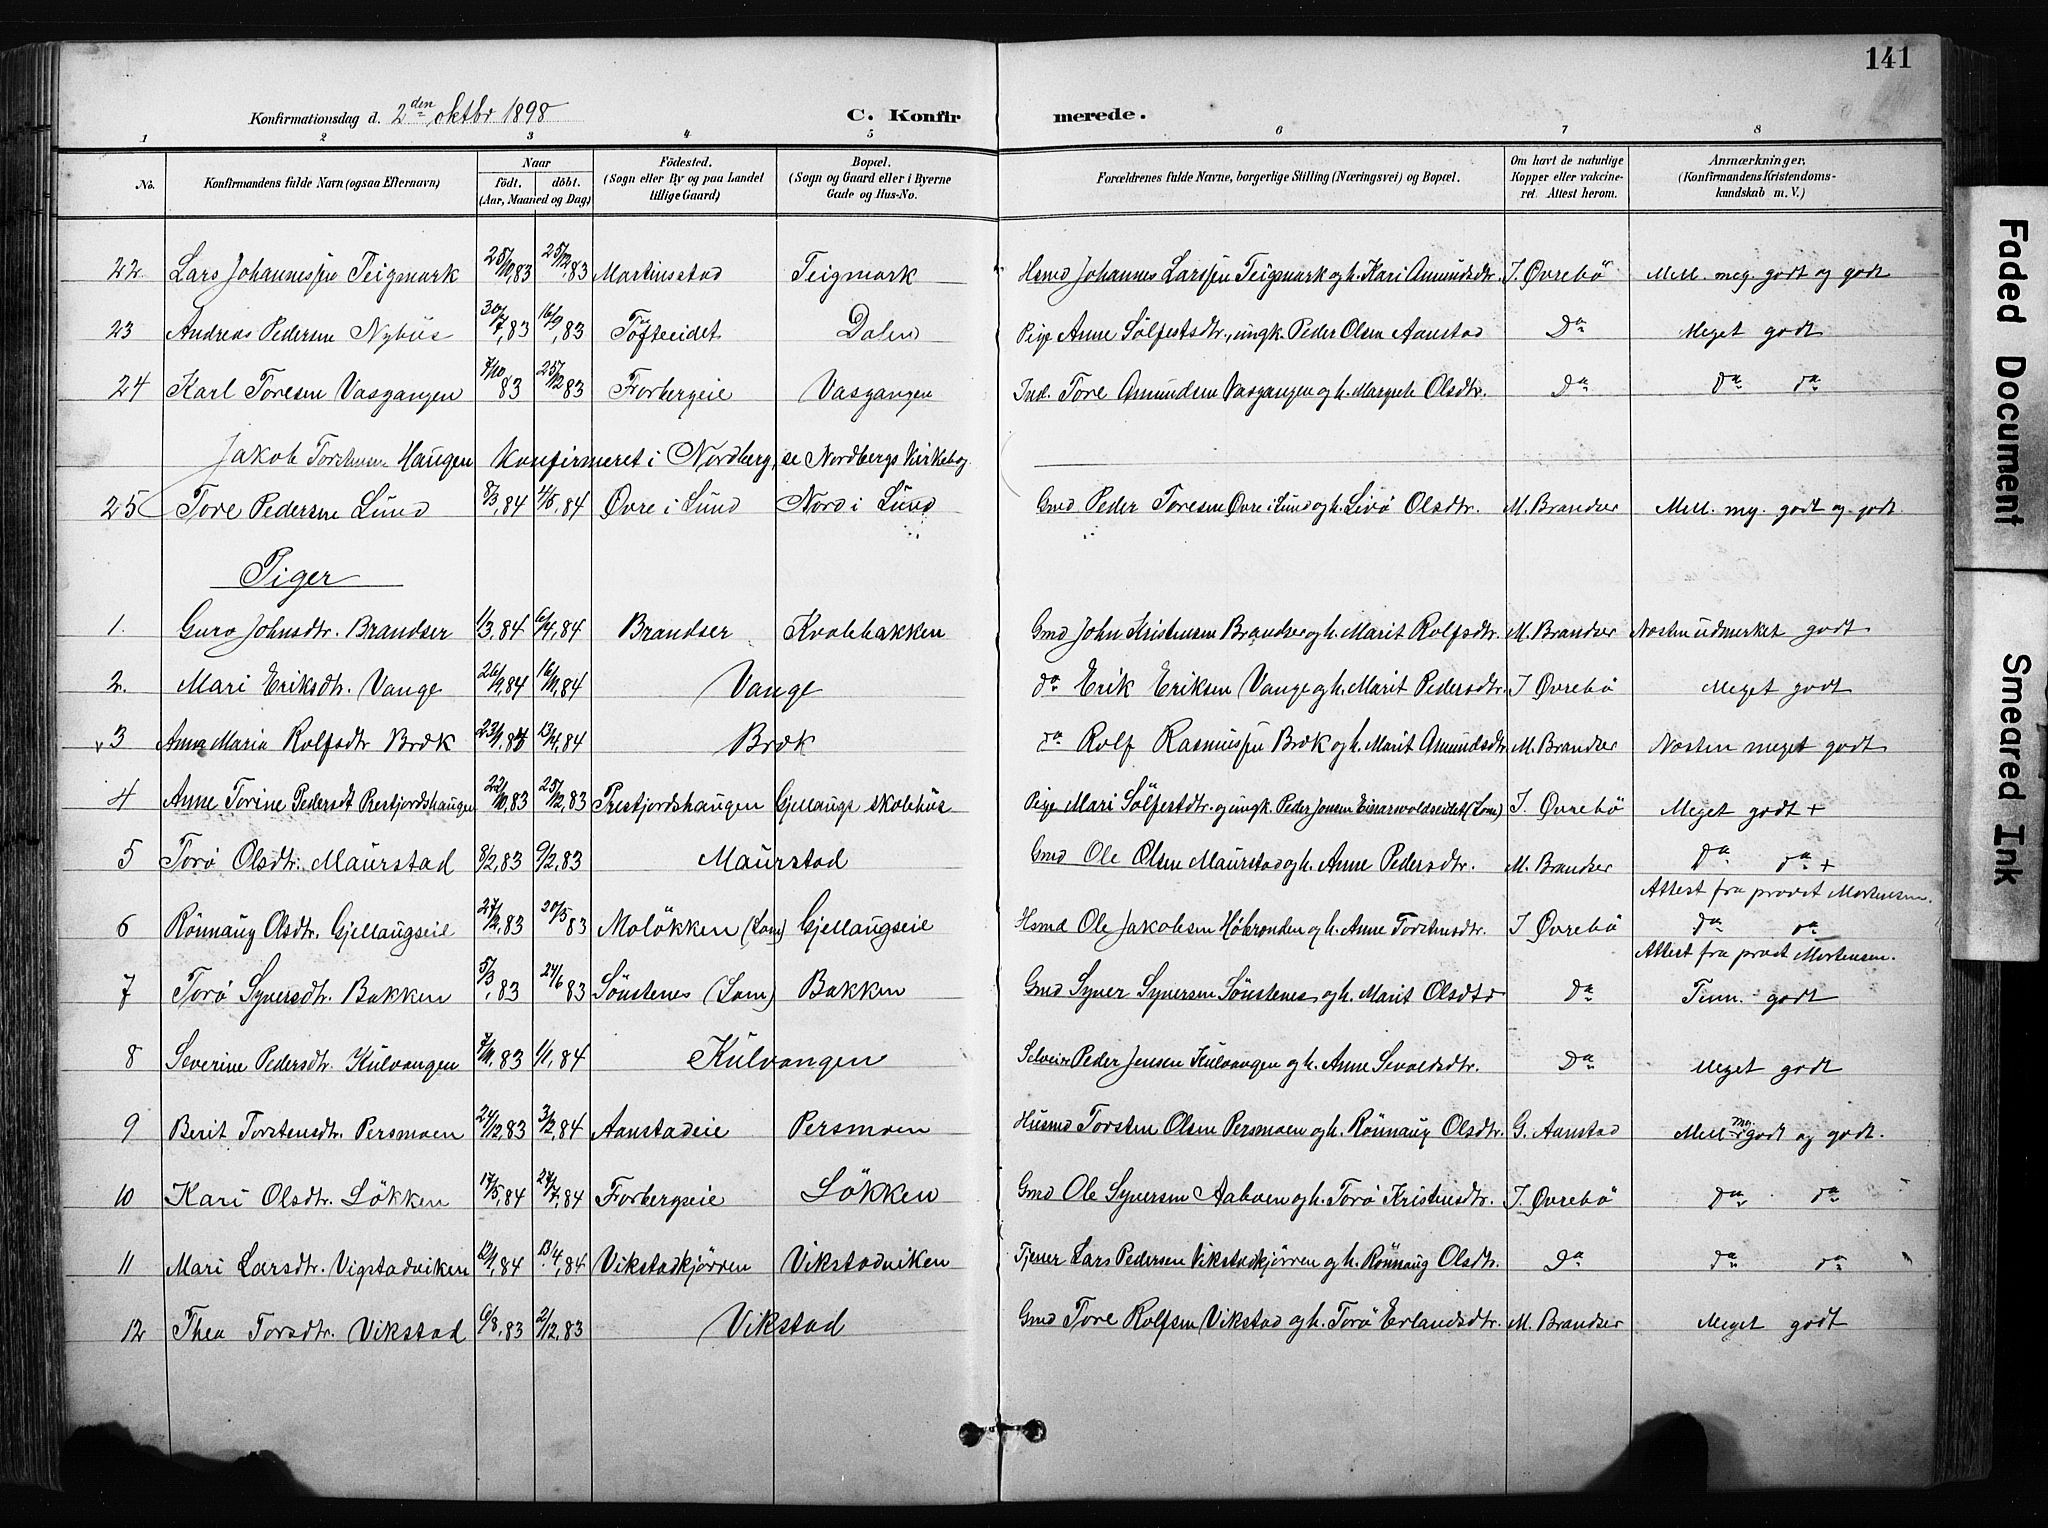 141
Konfirmationsdag d. 2den oktbr 1898 C. Konfirmerede.
1 2 3 4 5 6 7 8
No. Konfirmandens fulde Navn (ogsaa Efternavn) Naar födt, döbt. (Aar, Maaned og Dag) Födested. (Sogn eller By og paa Landet tillige Gaard) Bopæl. (Sogn og Gaard eller i Byerne Gade og Hus-No. Forældrenes fulde Navne, borgerlige Stilling (Næringsvei) og Bopæl. Om havt de naturlige Kopper eller vakcineret. Attest herom. Anmærkninger, (Konfirmandens Kristendomskundskab m. V.)
22 Lars Johannessen Teigmark 25/10,83 25/12,83 Martinsstad Teigmark Hsmd Johannes Larssen Teigmark og h. Kari Amundsdtr. I. Øvrebö Mell. meg. godt og godt
23 Andreas Pedersen Nybüs 30/7,83 16/9,83 Töfteeidet Dalen Pige Anne Sölfestsdtr., ungk. Peder Olsen Aanstad Da Meget godt
24 Karl Toresen Vasgangen 7/10 83 25/12 83 Forbergeie Vasgangen Ind. Tore Amundsen Vasgangen og h. Margrete Olsdtr. Da da da
Jakob Torstensen Haugen konfirmeret i Nordberg, se Nordbergs Kirkebog
25 Tore Pedersen Lund 8/3,84 4/5,84 Øvre i Lund Nord i Lund Gmd Peder Toresen Øvre i Lund og h. Livö Olsdtr. M. Brandser Mell. mg. godt og godt
Piger
1. Guro Johnsdtr. Brandser 1/3,84 6/4,84 Brandser Kvalebakken Gmd John Kristensen Brandser og h. Marit Rolfsdtr. M. Brandser Næsten udmerket godt
2. Mari Eriksdtr. Vange 26/9,84 16/11,84 Vange da Erik Eriksen Vange og h. Marit Pedersdtr. I Øvrebö Meget godt
3 Anna Maria Rolfsdtr Bræk 23/9,83 13/4,84 Bræk da Rolf Rasmussen Bræk og h. Marit Amundsdtr M. Brandser Næsten meget godt
4 Anne Torine Pedersdt Prestjordshaugen 22/10,83 25/12,83 Prestjordshaugen Gjellaugs skolehüs Pige Mari Sölfestdtr. og ungk. Peder Jonsen Einarsvoldseidet (Lom) I. Øvrebö Meget godt +
5 Torö Olsdtr. Maurstad 8/2,83 9/2,83 Maurstad Gmd Ole Olsen Maurstad og h. Anne Pedersdtr. M. Brandser da da +
Attest fra provst Mortensen.
6 Rönnaug Olsdtr. Gjellaugseie 27/2,83 20/5 83 Molökken (Lom) Gjellaugseie Hsmd Ole Jakobsen Höbronden og h. Anne Torstensdtr. I Øvrebö da da
Attest fra provst Mortensen.
7 Torö Syversdtr. Bakken 5/3,83 24/6 83 Sönstenes (Lom) Bakken Gmd Syver Syversen Sönstenes og h. Marit Olsdtr Da Tem. godt
8 Severine Pedersdtr. Kulvangen 7/11,83 1/1,84 Kulvangen Selveier Peder Jensen Kulvangen og h. Anne Sevaldsdtr. Da Meget godt
9 Berit Torstensdtr. Persmoen 24/12,83 3/2,84 Aanstadeie Persmoen Husmd Torsten Olsen Persmoen og h. Rönnaug Olsdtr. G. Aanstad Mell. mg. godt og godt.
10 Kari Olsdtr. Lökken 17/5,84 27/7,84 Forbergseie Lökken Gmd Ole Syversen Aaboen og h. Torö Kristensdtr. I. Øvrebö da da
11 Mari Larsdtr. Vigstadviken 12/1,84 13/4,84 Vikstadkjörren Vikstadviken Tjener Lars Pedersen Vikstadkjörren og h. Rönnaug Olsdtr. Da da da
12 Thea Torsdtr. Vikstad 6/8,83 2/12,83 Vikstad Gmd Tore Rolfsen Vikstad og h. Torö Erlandsdtr. M. Brandser Meget godt
Faded Document
Smeared Ink